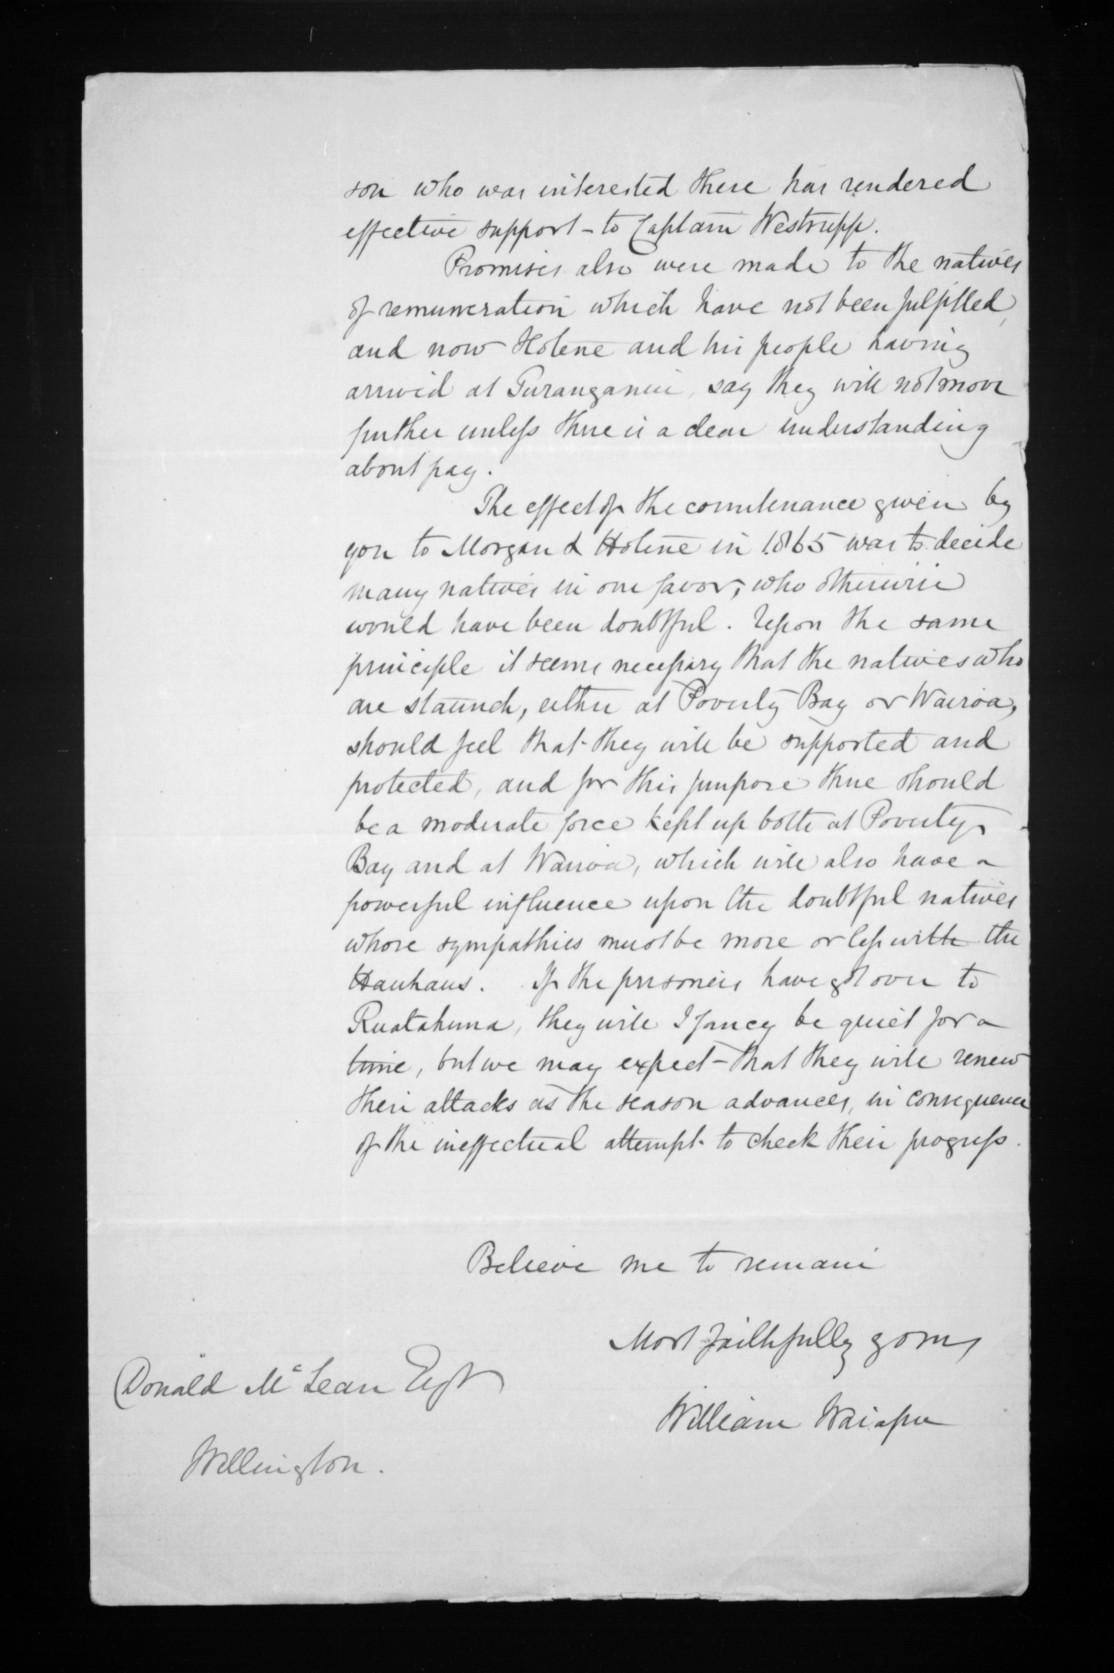 son who was interested there has rendered
effective support - to Captain Westrupp.
Promises also were made to the natives
of remuneration which have not been fulfilled,
and now Hotene and his people having
arrived at Turanganui, say they will not move
further unless there is a clear understanding
about pay.
The effect of the countenance given by
you to Morgan & Hotene in 1865 was to decide
many natives in our favor, who otherwise
would have been doubtful. Upon the same
principle it seems necessary that the natives who
are staunch, either at Poverty Bay or Wairoa,
should feel that they will be supported and
protected, and for this purpose there should
be a moderate force kept up both at Poverty
Bay and at Wairoa, which will also have a
powerful influence upon the doubtful natives
whose sympathies must be more or less with the
Hauhaus. If the prisoners have got over to
Ruatahuna, they will I fancy be quiet for a
time, but we may expect - that they will renew
their attacks as the season advances, in consequence
of the ineffectual attempt to check their progress.
Believe me to remain
Most faithfully yours
William Waiapu
Donald McLean Esqr
Wellington.